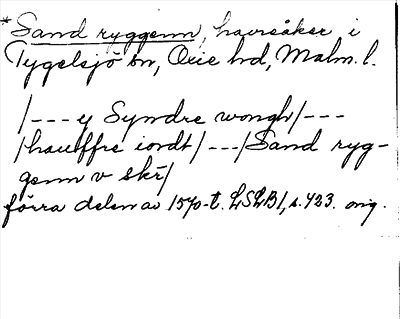 *Sand ryggenn, havreåker i
Tygelsjö sn, Oxie hd, Malm. l.
/--- y Syndre wongh/---
/hauffre iordt/---/Sand ryg-
genn v skr/
förra delen av 1570-t. LSLB1, s. 423. orig.